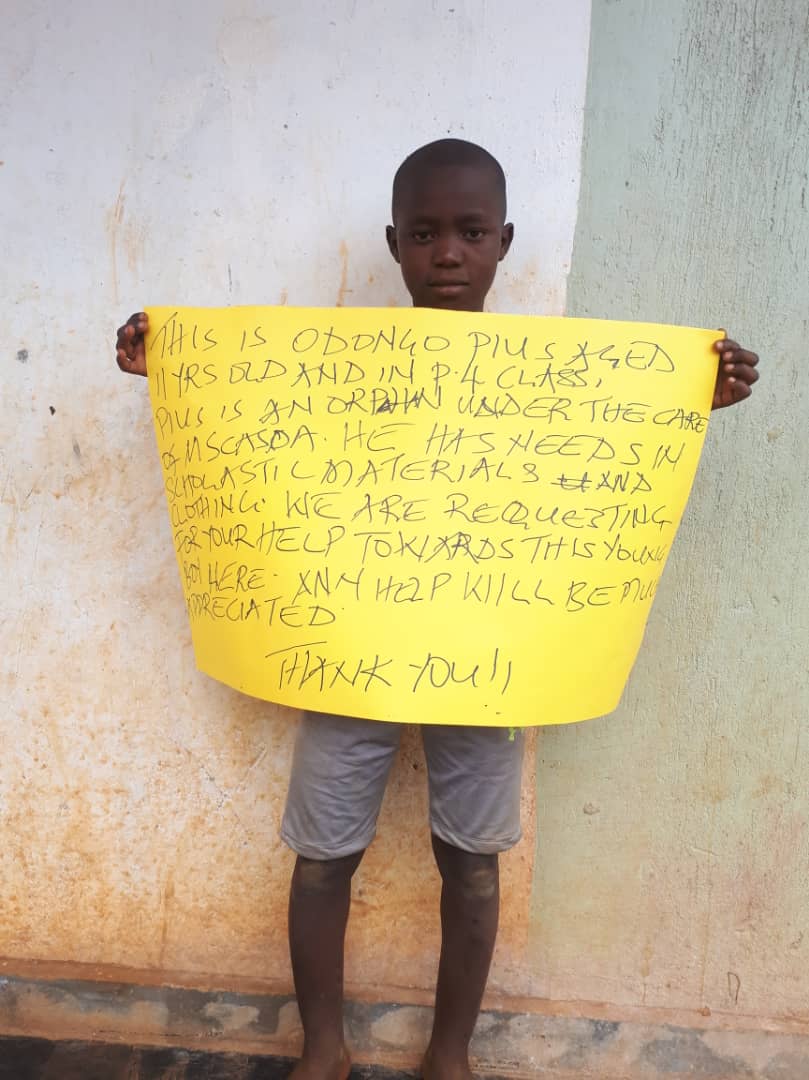 THIS IS ODONGO PIUS AGED
11 YRS OLD AND IN P.4 CLASS,
PIUS IS AN ORPHAN UNDER THE CARE
OF MSCASDA. HE HAS NEEDS IN
SCHOLASTIC MATERIALS AND
CLOTHING. WE ARE REQUESTING
FOR YOUR HELP TOWARDS THIS YOUNG
BOY HERE. ANY HELP WILL BE MUCH
APPRECIATED.
THANK YOU!!